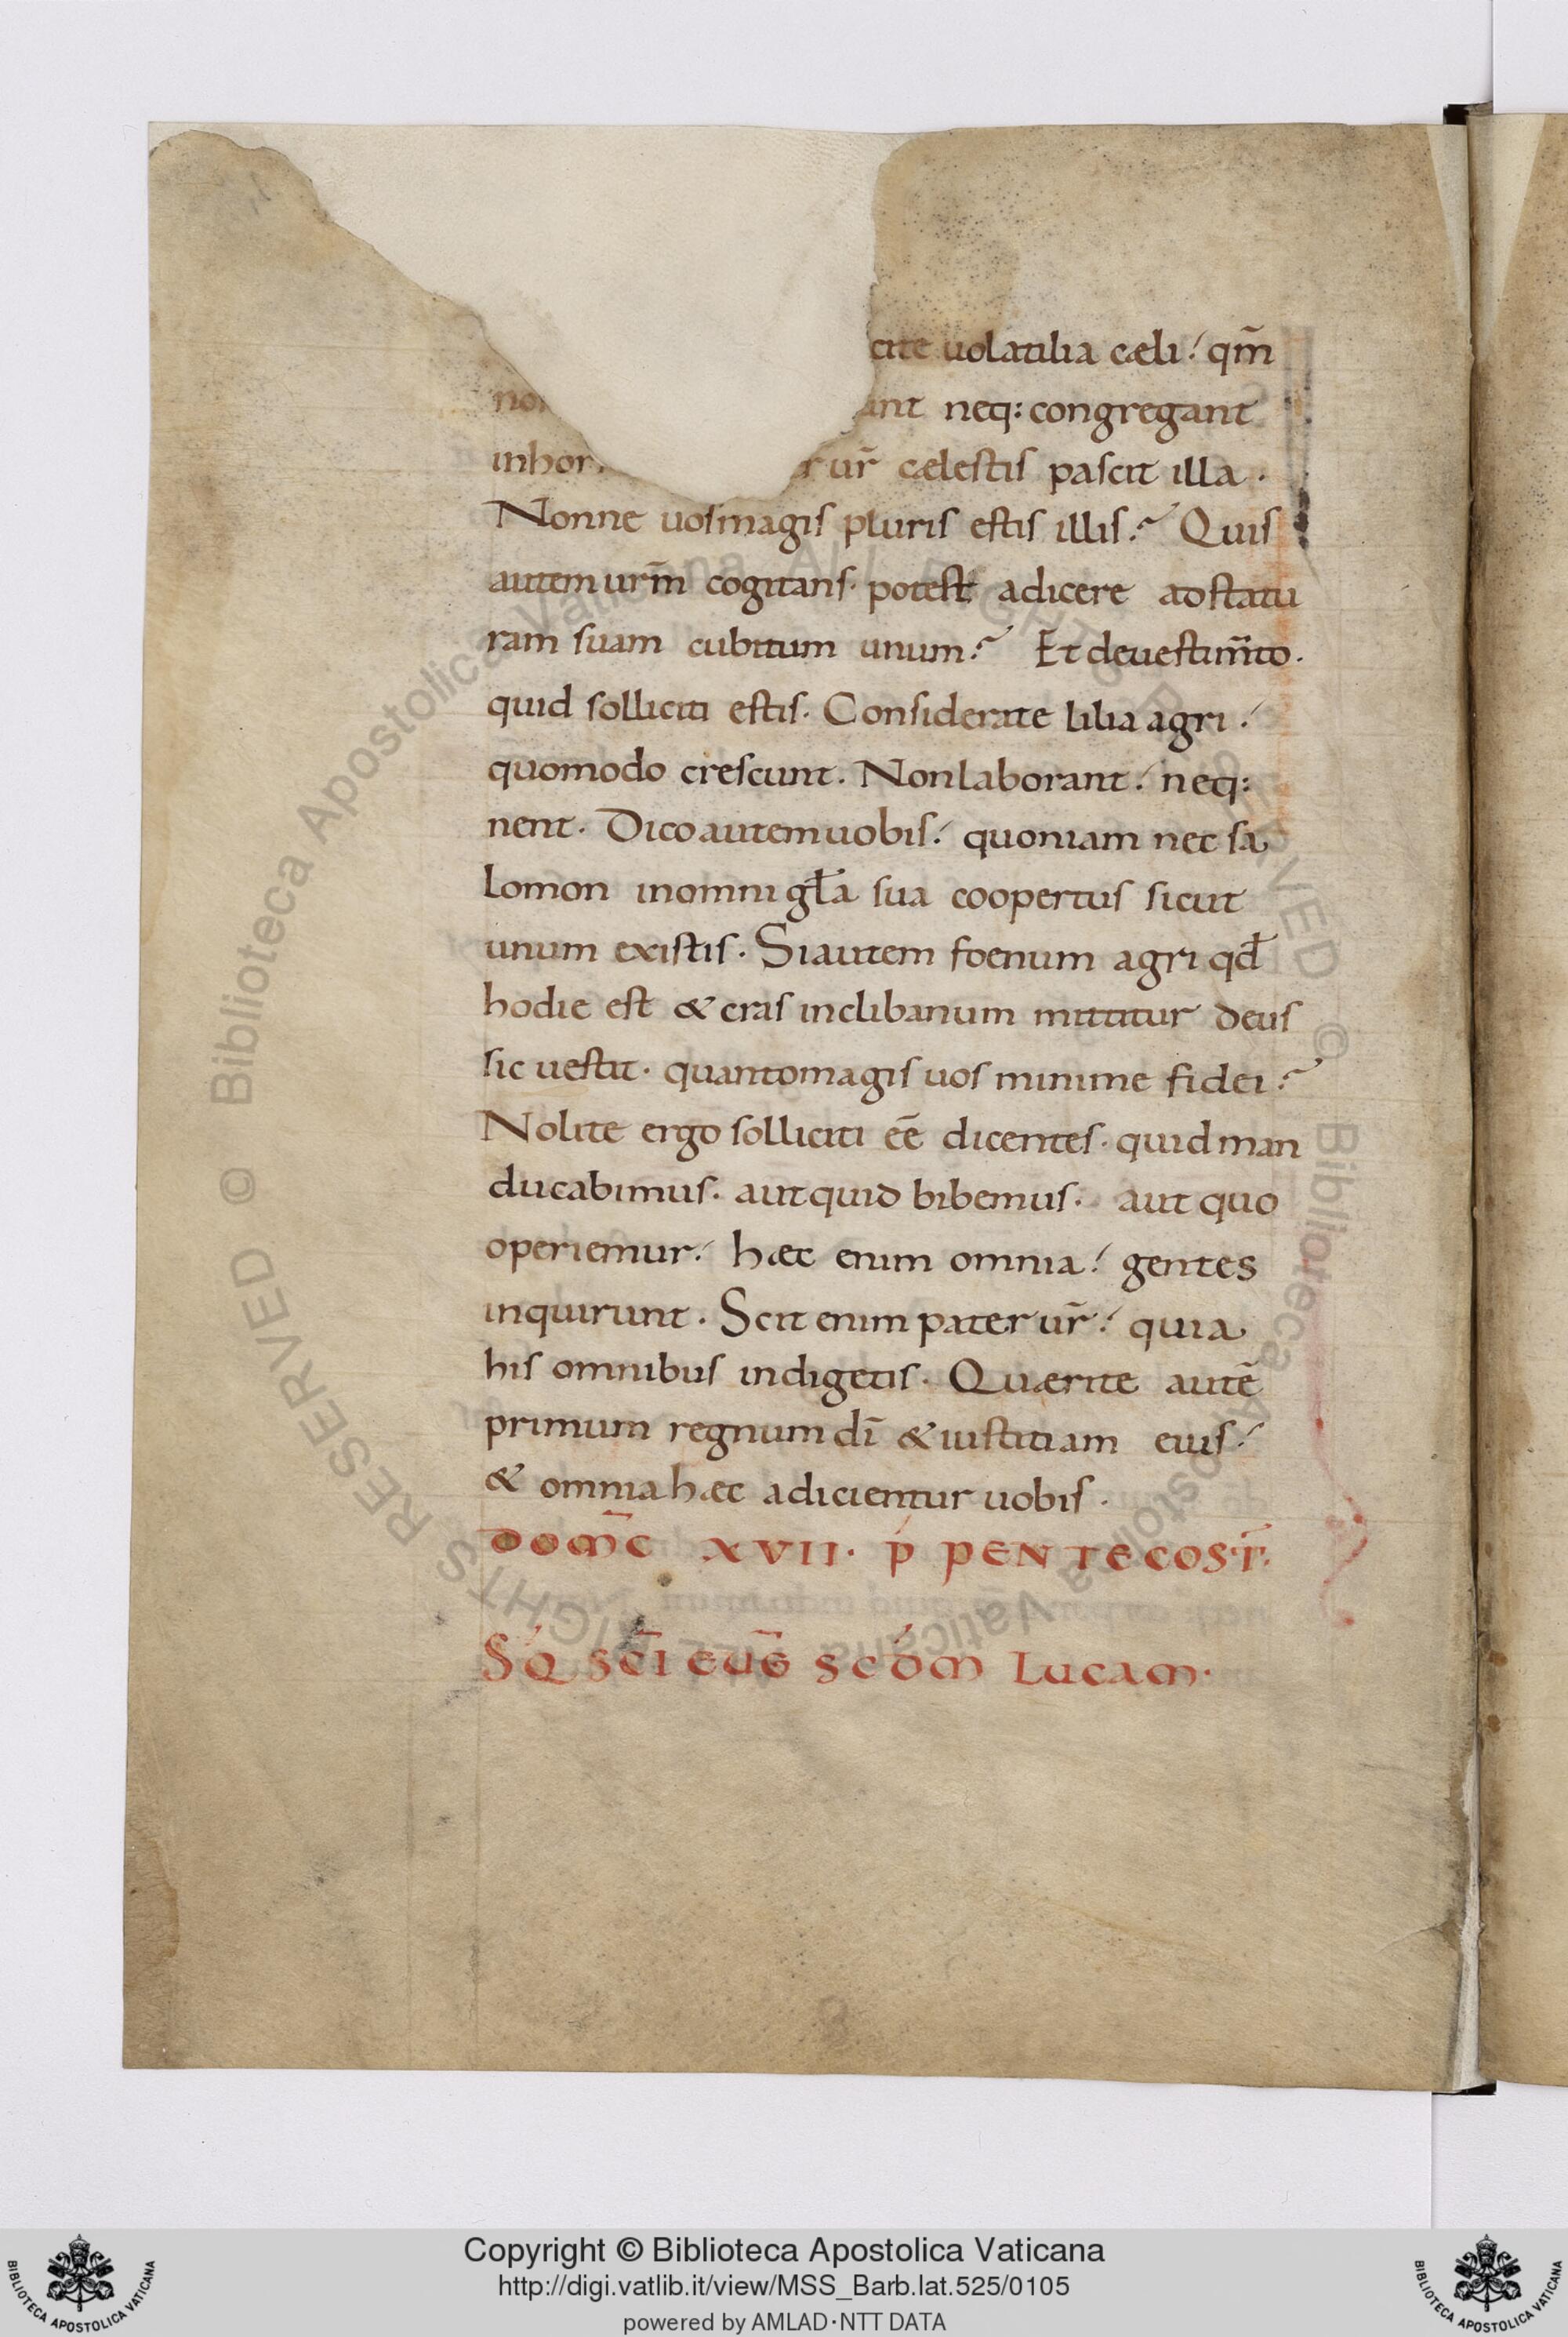 cite uolatilia cæli. qm̄
ant neq: congregant
inhor
ur̄ cælestis pascit illa.
Nonne uos magis pluris estis illis? Quis
autem ur̄m cogitans. potest adicere ad statu
ram suam cubitum unum? Et de uestim̄to.
quid solliciti estis. Considerate lilia agri.
quomodo crescunt. Non laborant. neq:
nent. Dico autem uobis. quoniam nec sa
lomon in omni gl̄a sua coopertus sicut
unum existis. Si autem foenum agri qd̄
hodie est & cras in clibanum mittitur deus
sic uestit. quanto magis uos minime fidei?
Nolite ergo solliciti eē dicentes. quid man
ducabimus. aut quid bibemus. aut quo
operiemur. hæc enim omnia. gentes
inquirunt. Scit enim pater ur̄. quia
his omnibus indigetis. Quærite autē
primum regnum dī & iustitiam eius.
& omnia hæc adicientur uobis.
DOM̄C XVII. P PENTECOST̄.
SQ SC̄I EUG̅ SCDM LUCAM.
Copyright © Biblioteca Apostolica Vaticana
http://digi.vatlib.it/view/MSS_Barb.lat.525/0105
powered by AMLAD·NTT DATA
BIBLIOTECA APOSTOLICA VATICANA
BIBLIOTECA APOSTOLICA VATICANA